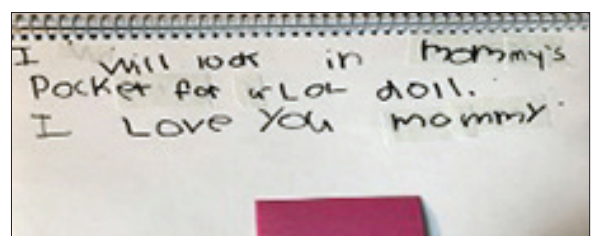 I will look in mommy's
Pocket for a LOL doll.
I Love You mommy.